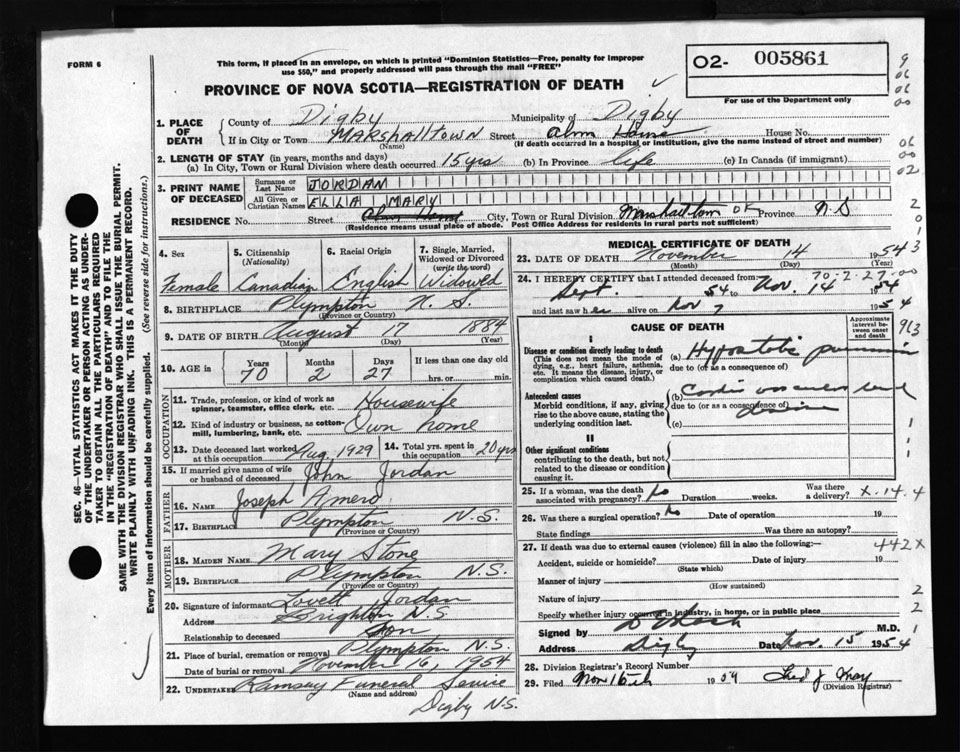 FORM 6
This form, if placed in an envelope, on which is printed "Dominion Statistics—Free, penalty for improper
use $50," and properly addressed will pass through the mail "FREE"
PROVINCE OF NOVA SCOTIA—REGISTRATION OF DEATH
O2- 005861
For use of the Department only
9 06 06 00
1. PLACE OF DEATH
County of Digby Municipality of Digby
If in City or Town MARSHALLTOWN Street Alms House House No.
(Name) (If death occurred in a hospital or institution, give the name instead of street and number)
2. LENGTH OF STAY (in years, months and days)
(a) In City, Town or Rural Division where death occurred 15 yrs (b) In Province life (c) In Canada (if immigrant)
06 00 02
3. PRINT NAME OF DECEASED
Surname or Last Name JORDAN
All Given or Christian Names ELLA MARY
RESIDENCE No. Street City, Town or Rural Division Marshalltown Province N.S
(Residence means usual place of abode. Post Office Address for residents in rural parts not sufficient)
2 0 1 3
4. Sex Female
5. Citizenship (Nationality) Canadian
6. Racial Origin English
7. Single, Married, Widowed or Divorced (write the word) Widowed
8. BIRTHPLACE Plympton N.S.
(Province or Country)
9. DATE OF BIRTH August 17 1884
(Month) (Day) (Year)
10. AGE in Years 70 Months 2 Days 27 If less than one day old hrs. or min.
OCCUPATION
11. Trade, profession, or kind of work as spinner, teamster, office clerk, etc. Housewife
12. Kind of industry or business, as cotton-mill, lumbering, bank, etc. Own home
13. Date deceased last worked at this occupation Aug. 1929 14. Total yrs. spent in this occupation 20 yrs
15. If married give name of wife or husband of deceased John Jordan
FATHER
16. NAME Joseph Amero
17. BIRTHPLACE Plympton N.S.
(Province or Country)
MOTHER
18. MAIDEN NAME Mary Stone
19. BIRTHPLACE Plympton N.S.
(Province or Country)
20. Signature of informant Lovett Jordan
Address Brighton N.S.
Relationship to deceased Son
21. Place of burial, cremation or removal Plympton N.S.
Date of burial or removal November 16, 1954
22. UNDERTAKER Ramsay Funeral Service
(Name and address)
Digby N.S.
MEDICAL CERTIFICATE OF DEATH
23. DATE OF DEATH November 14 1954
(Month) (Day) (Year)
70-2-27-00
24. I HEREBY CERTIFY that I attended deceased from:
Sept. 54 to Nov. 14 1954
and last saw her alive on Nov 7 1954
CAUSE OF DEATH
Approximate interval between onset and death
963
I
Disease or condition directly leading to death
(This does not mean the mode of dying, e.g., heart failure, asthenia, etc. It means the disease, injury, or complication which caused death.
(a) Hypostatic pneumonia
due to (or as a consequence of)
Antecedent causes
Morbid conditions, if any, giving rise to the above cause, stating the underlying condition last.
(b) Cardio vascular renal
due to (or as a consequence of) disease
(c)
II
Other significant conditions
contributing to the death, but not related to the disease or condition causing it.
25. If a woman, was the death associated with pregnancy? No Duration weeks. Was there a delivery?
X-14.4
26. Was there a surgical operation? No Date of operation
State findings Was there an autopsy?
27. If death was due to external causes (violence) fill in also the following:—
442X
Accident, suicide or homicide? Date of injury 19
(State which)
Manner of injury
(How sustained)
Nature of injury
Specify whether injury occurred in industry, in home, or in public place
Signed by M.D.
Address Digby Date Nov. 15 1954
28. Division Registrar's Record Number
29. Filed Nov 16th 1954
(Division Registrar)
SEC. 46—VITAL STATISTICS ACT MAKES IT THE DUTY
OF THE UNDERTAKER OR PERSON ACTING AS UNDER-
TAKER TO OBTAIN ALL THE PARTICULARS REQUIRED
IN THE "REGISTRATION OF DEATH" AND TO FILE THE
SAME WITH THE DIVISION REGISTRAR WHO SHALL ISSUE THE BURIAL PERMIT.
WRITE PLAINLY WITH UNFADING INK. THIS IS A PERMANENT RECORD.
Every item of information should be carefully supplied. (See reverse side for instructions.)